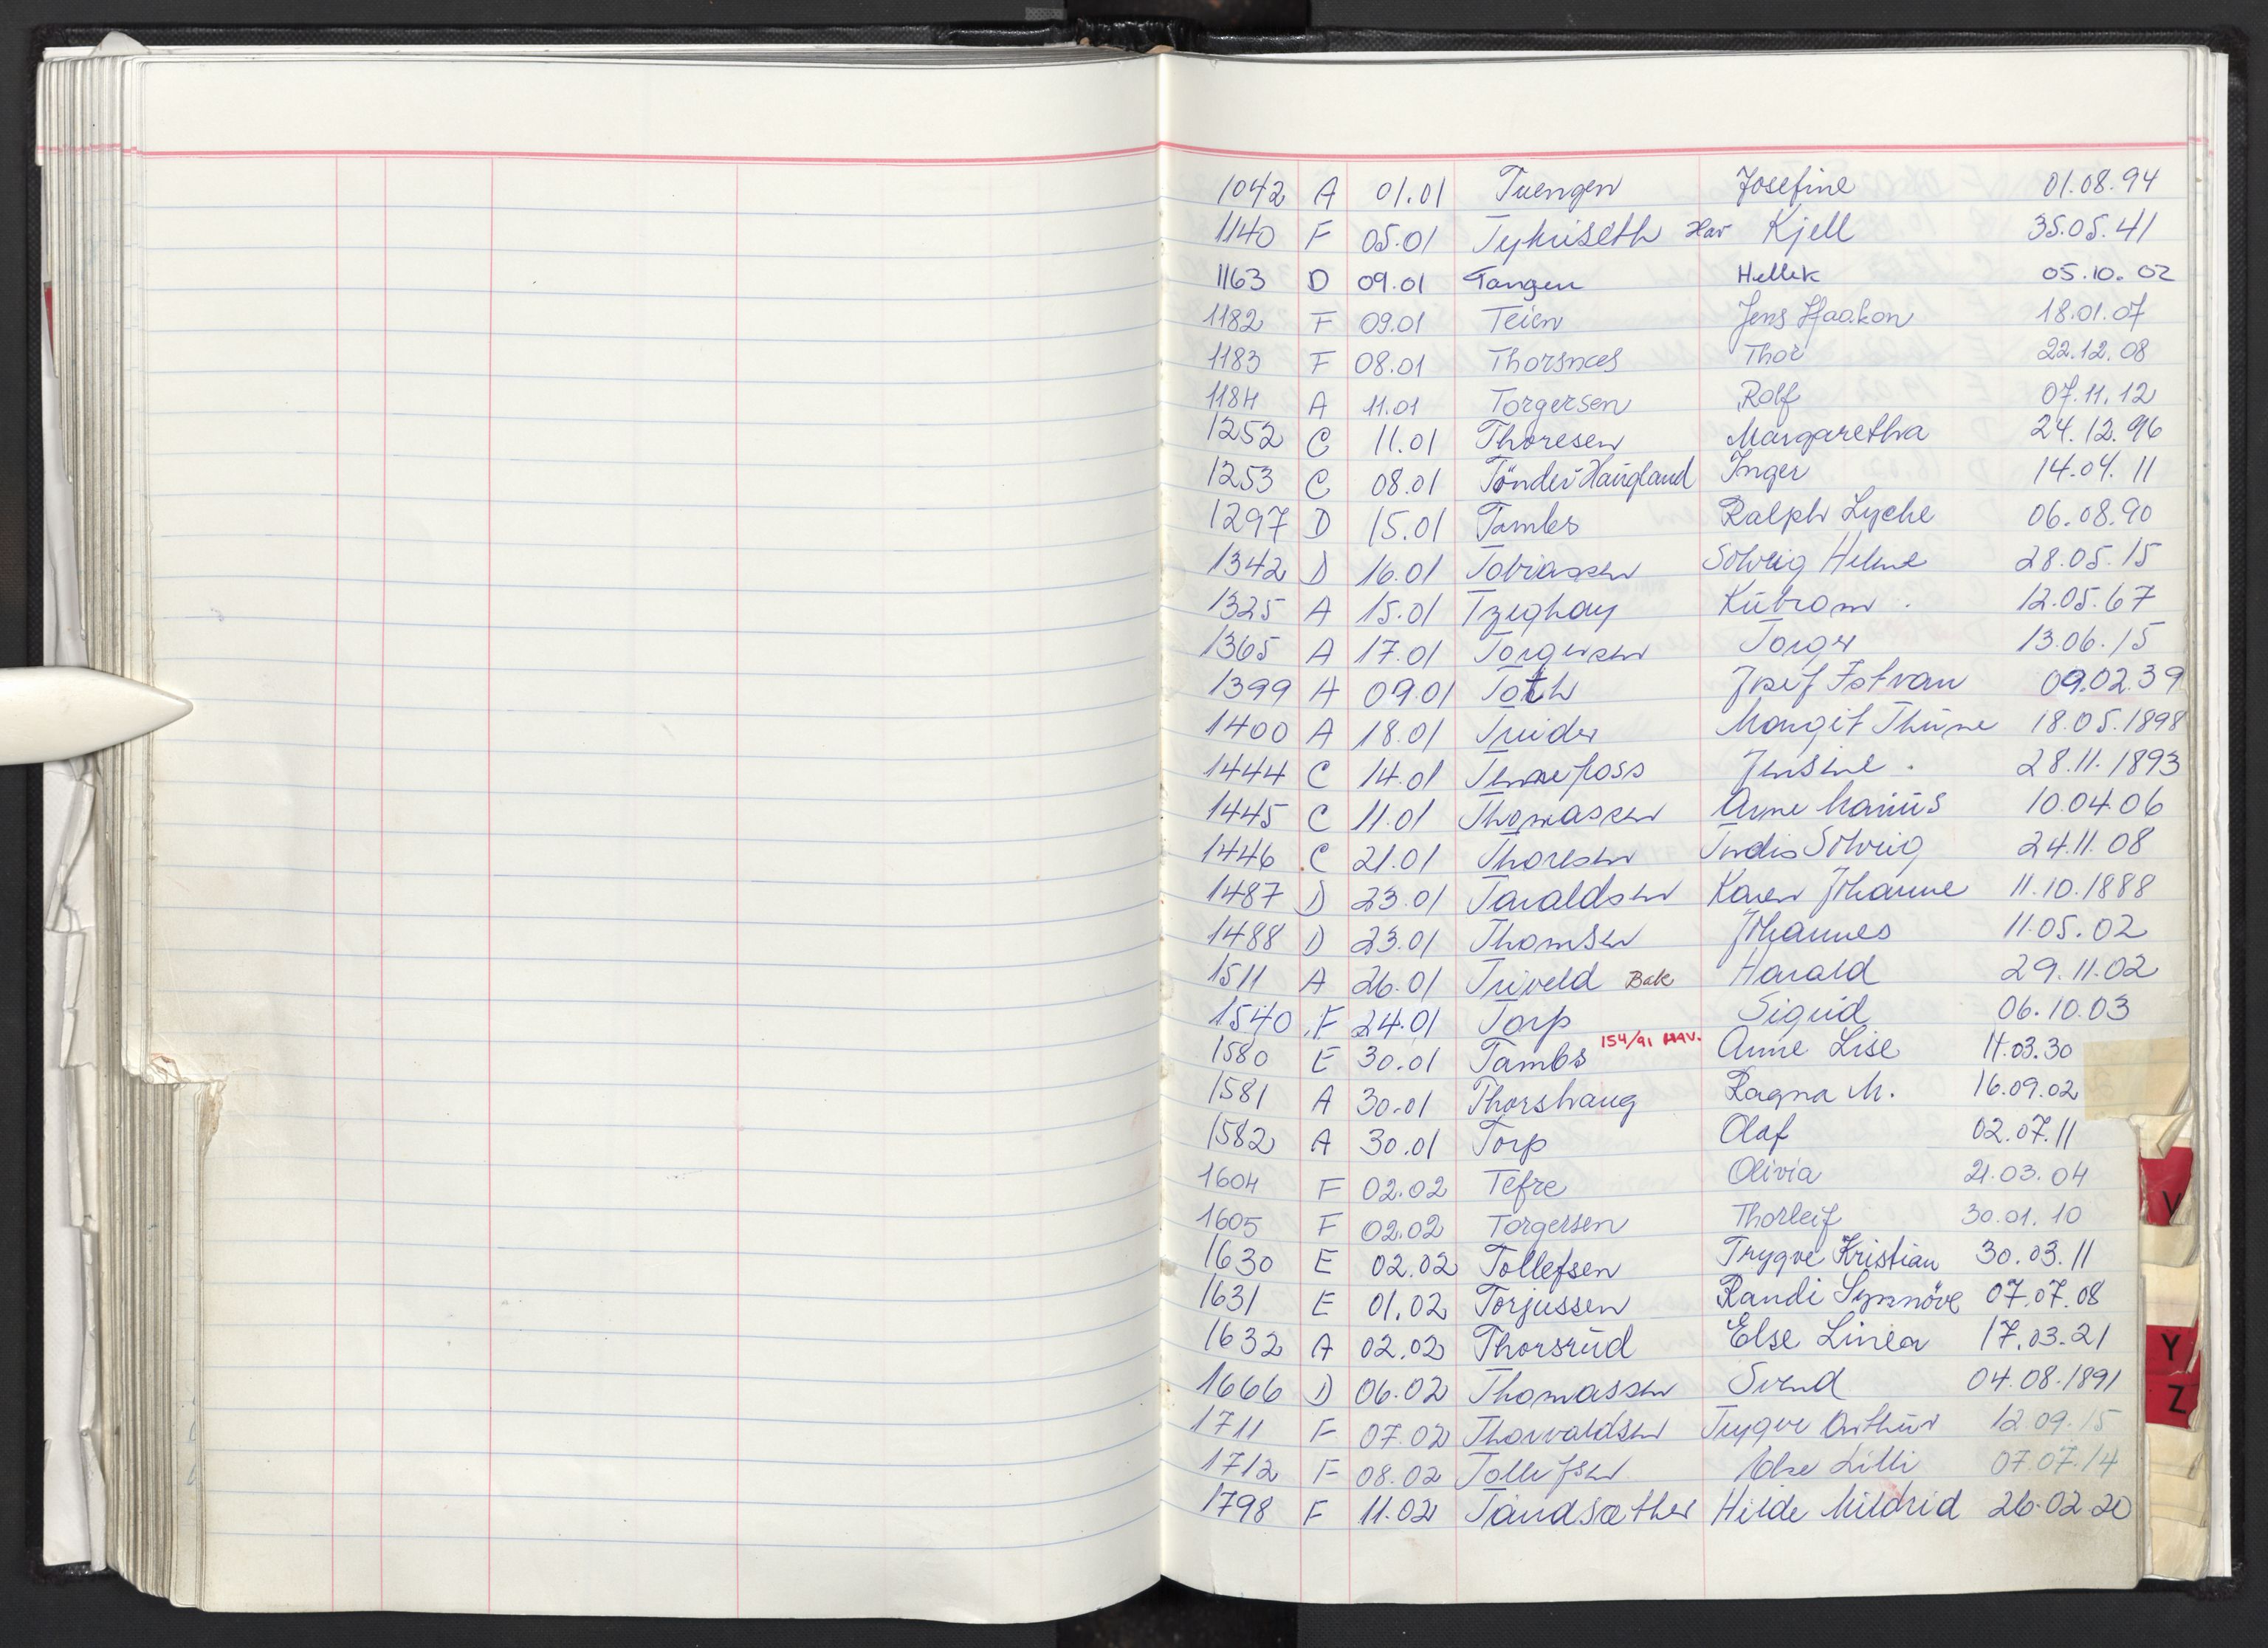 1042 A 01.01 Tuengen Josefine 01.08.94
1140 F 05.01 Kjell 35.05.41
1163 D 09.01 Tangen Hellek 05.10.02
1182 F 09.01 Teien Jens Haakon 18.01.07
1183 F 08.01 Thorsnæs Thor 22.12.08
1184 A 11.01 Torgersen Rolf 07.11.12
1252 C 11.01 Thoresen Margaretha 24.12.96
1253 C 08.01 Tönder Haugland Inger 14.04.11
1297 D 15.01 Tambs Ralph Lyche 06.08.90
1342 D 16.01 Tobiassen Solveig Helene 28.05.15
1325 A 15.01 Tzeghay Kubrom 12.05.67
1365 A 17.01 Torgersen Torger 13.06.15
1399 A 09.01 Toth Josef Istvan 09.02.39
1400 A 18.01 Margit Thune 18.05.1898
1444 C 14.01 Tennefoss Jensine 28.11.1893
1445 C 11.01 Thomassen Arne Marius 10.04.06
1446 C 21.01 Thoresen Tordis Solveig 24.11.08
1487 D 23.01 Taraldsen Karen Johanne 11.10.1888
1488 D 23.01 Thomsen Johannes 11.05.02
1511 A 26.01 Triveld Bak Harald 29.11.02
1540 F 24.01 Torp Sigrid 06.10.03
1580 E 30.01 Tambs 154/91 HAV. Anne Lise 11.03.30
1581 A 30.01 Thorshaug Ragna M. 16.09.02
1582 A 30.01 Torp Olaf 02.07.11
1604 F 02.02 Tefre Olivia 21.03.04
1605 F 02.02 Torgersen Thorleif 30.01.10
1630 E 02.02 Tollefsen Trygve Kristian 30.03.11
1631 E 01.02 Torjussen Randi Synnöve 07.07.08
1632 A 02.02 Thorsrud Else Linea 17.03.21
1666 D 06.02 Thomassen Svend 04.08.1891
1711 F 07.02 Thorvaldsen Trygve Arthur 12.09.15
1712 F 08.02 Tollefsen Else Lilli 07.07.14
1798 F 11.02 Tandsæther Hilde Mildrid 26.02.20
V
Y
Z